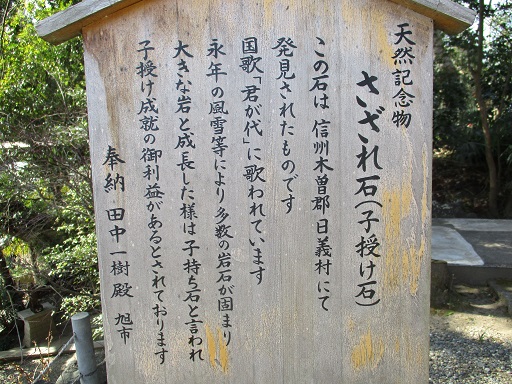 天然記念物
さざれ石(子授け石)
この石は 信州木曽郡 日義村にて
発見されたものです
国歌「君が代」に歌われています
永年の風雪等により多数の岩石が固まり
大きな岩と成長した様は子持ち石と言われ
子授け成就の御利益があるとされております
奉納 田中一樹殿 旭市